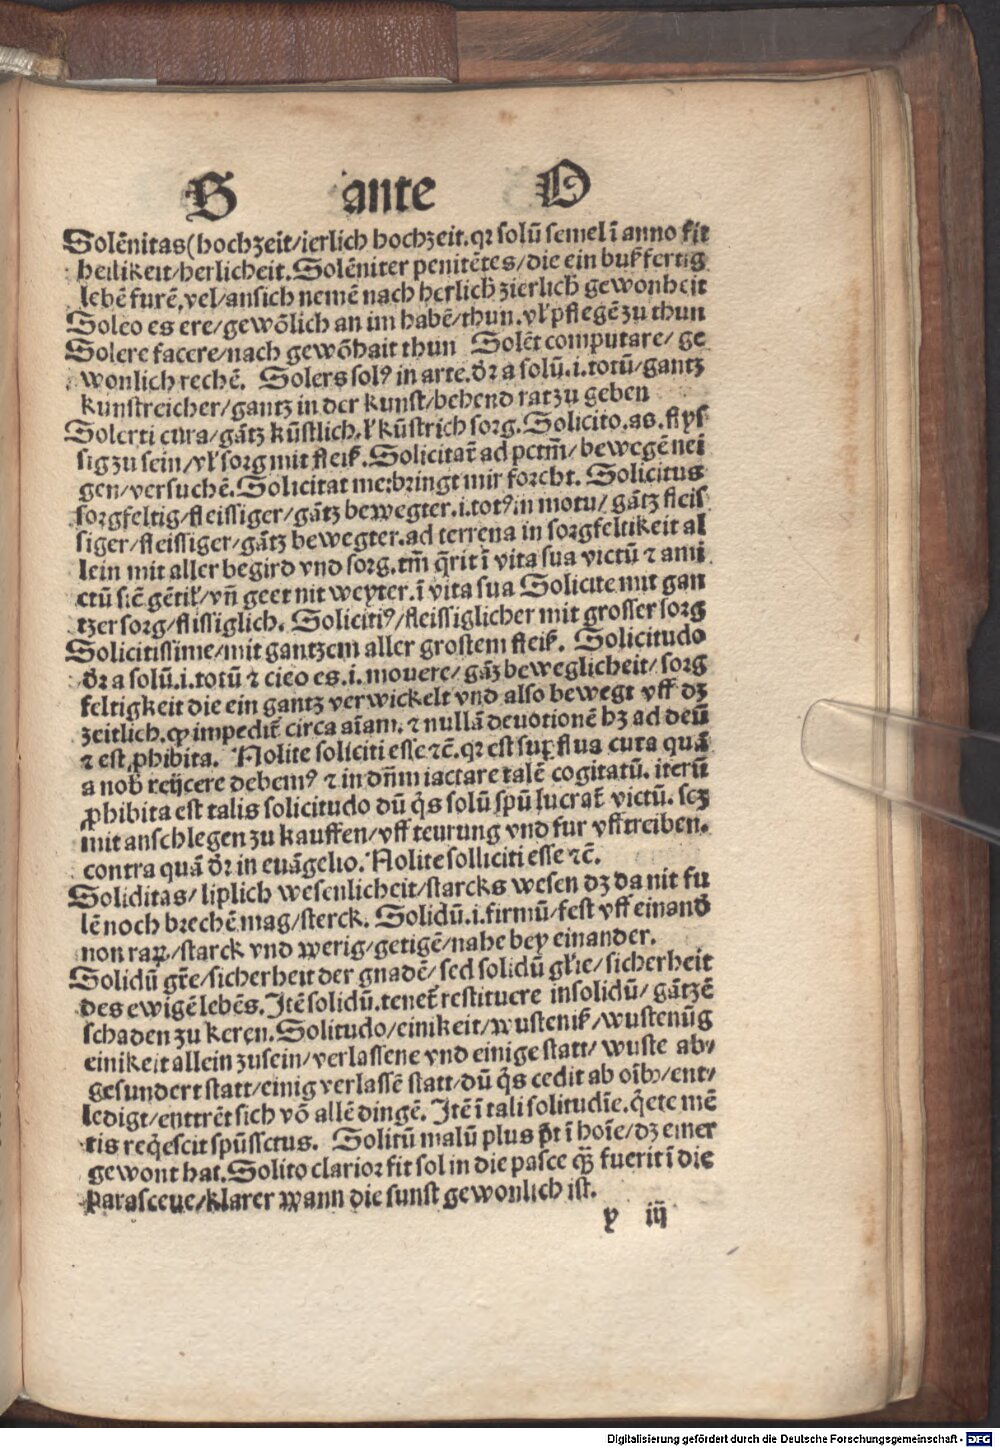 S ante O
Solēnitas (hochzeit/ierlich hochzeit. qꝛ solū semel ī anno fit
heilikeit/herlicheit. Solēniter penitētes/die ein bußfertig
lebē furē. vel/ansich nemē nach herlich̄ zierlich̄ gewonheit
Soleo es ere/gewōlich an im habē/thun. vľ pflegē zu thun
Solere facere/nach gewōhait thun Solēt computare/ ge
wonlich rechē. Solers solꝰ in arte. dꝛ̄ a solū. i. totū/gantz
kunstreicher/gantz in der kunst/behend rat zu geben
Solerti cura/gātz kūstlich. ľ kūstrich sorg. Solicito. as. flys
sig zu sein/vľ sorg mit fleiß. Solicitat̄ ad pctm̄/ bewegē nei
gen/versuchē. Solicitat me: bringt mir forcht. Solicitus
sorgfeltig/fleissiger/gātz bewegter. i. totꝰ in motu/ gātz fleis
siger/fleissiger/gātz bewegter. ad terrena in sorgfeltikeit al
lein mit aller begird vnd sorg. tm̄ q̄rit ī vita sua victū ⁊ ami
ctū s. ē gētiľ/vn̄ geet nit weyter. ī vita sua Solicite mit gan
tzer sorg/flissiglich. Solicitiꝰ/fleissiglicher mit grosser sorg
Solicitissime/mit gantzem aller grostem fleiß. Solicitudo
dꝛ̄ a solū. i. totū ⁊ cieo es. i. mouere/ gātz beweglicheit/ sorg
feltigkeit die ein gantz verwickelt vnd also bewegt vff dz
zeitlich. ꝙ impedit̄ circa aīam. ⁊ nullā deuotionē hz ad deū
⁊ est ꝓhibita. Nolite soliciti esse ⁊ē. qꝛ est suꝑflua cura quā
a nob̄ reijcere debemꝰ ⁊ in dn̄m iactare talē cogitatū. iterū
ꝓhibita est talis solicitudo dū q̇s solū spū lucrat̄ victū. scz
mit anschlegen zu kauffen/vff teurung vnd fur vfftreiben.
contra quā dꝛ̄ in euāgelio. Nolite solliciti esse ⁊ē.
Soliditas/ liplich wesenlicheit/starcks wesen dz da nit fu
lē noch brechē mag/sterck. Solidū. i. firmū/fest vff einand̄
non raꝝ/starck vnd werig/getigē/nahe bey einander.
Solidū gr̄e/sicherheit der gnadē/ sed solidū gľie/ sicherheit
des ewigē lebēs. Itē solidū. tenet̄ restituere insolidū/ gātzē
schaden zu keren. Solitudo/einikeit/wusteniß/wustenūg
einikeit allein zusein/verlassene vnd einige statt/ wuste ab/
gesundert statt/einig verlassē statt/dū q̇s cedit ab oībꝰ/ent/
ledigt/enttrēt sich vō allē dingē. Itē ī tali solitudīe. q̇ete mē
tis req̇escit spūssctus. Solitū malū plus pōt ī hoīe/dz einer
gewont hat. Solito clarior fit sol in die pasce ꝙ̄ fuerit ī die
parasceue/klarer wann die sunst gewonlich ist.
y iij
Digitalisierung gefördert durch die Deutsche Forschungsgemeinschaft - DFG